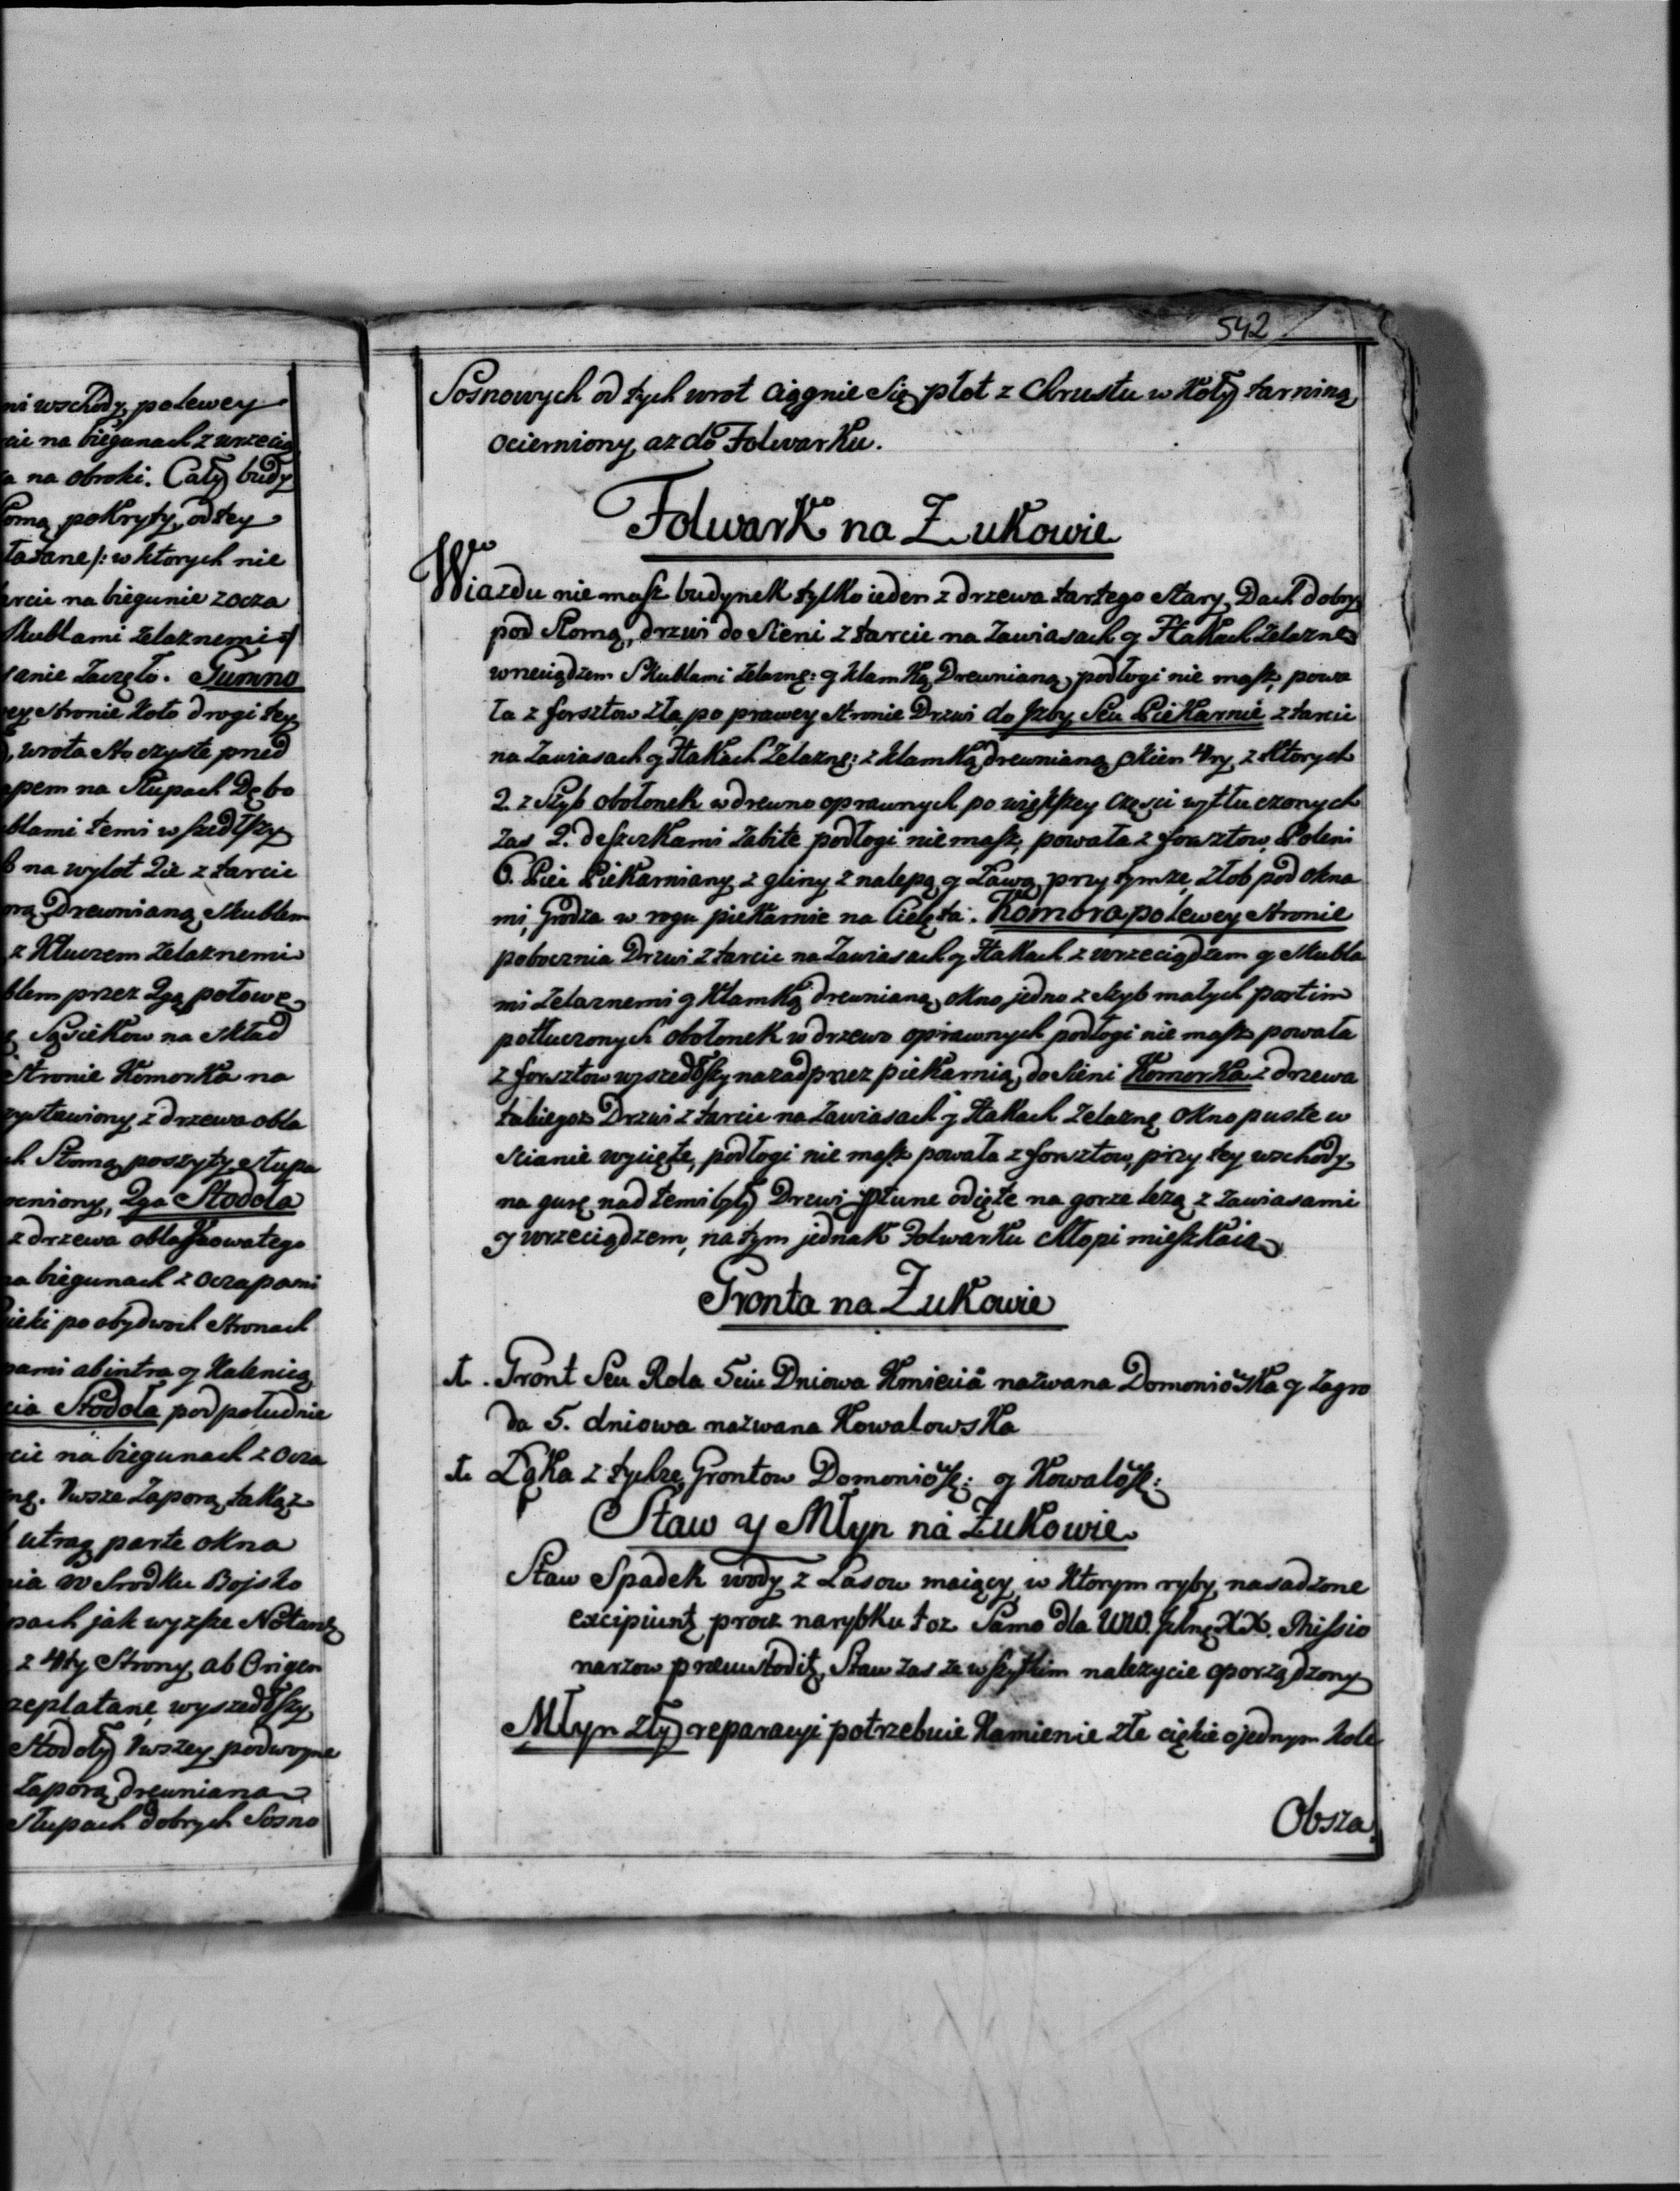 ni wschody, po lewey
cie na biegunach z wrzecią
a na obroki. Cały budy
łomą pokryty, od tey
łatane /: w ktorych nie
arcie na biegunie z ocza
skublami żelaznemi
anie zaczęło. Gumno
ey stronie koło drogi tey
, wrota sto czyste przed
apem na słupach Dębo
blami temi wszedłszy
b na wylot 2ie z tarcic
orą Drewnianą skublem
z kluczem żelaznemi
blem przez 2gą połowę
ę Sąsiekow na skład
stronie Komorka na
zystawiony z drzewa obla
h Słomą poszyty, słupa
ocniony, 2ga Stodoła
z drzewa oblaskowatego
na biegunach z oczapami
sieki po obydwoch stronach
pami ab intra y Kalenicą
cia Stodoła pod południe
cie na biegunach z ocza
nę. 1wsza Zaporą takąż
utraq parte okna
nia w srodku Bojsko
pach jak wyższe Notand
z 4ty Strony, ab Origen
zeplatane wyszedłszy
Stodoły 1wszey podwoyne
Zaporą drewniana
słupach dobrych Sosno
542
Sosnowych od tych wrot ciągnie się płot z Chrustu w koły tarniną
ocierniony, az do Folwarku.
Folwark na Zukowie
Wiazdu nie masz budynek tylko ieden z drzewa tartego stary, Dach dobry
pod Słomą, drzwi do sieni z tarcic na zawiasach y Hakach żelazne
wrzeciądzem Skublami żelaznę: y klamką Drewnianą, podłogi nie masz, powa
ła z forsztow zła, po prawey stronie Drzwi do Jzby Seu Piekarnie z tarcic
na Zawiasach y Hakach Zelaznę: z klamką drewnianą, okien 4ry, z ktorych
2. z szyb obołonek w drewno oprawnych po większey częsci wytłuczonych
zas 2. deszczkami zabite podłogi nie masz, powała z forsztow. Poleni
6. Piec Piekarniany z gliny z nalepą y Ławą, przy tymze złob pod okna
mi, Grodza w rogu piekarnie na Cielęta. Komora po lewey stronie
pobocznia Drzwi z tarcic na Zawiasach y Hakach z wrzeciądzem y skubla
mi żelaznemi y klamką drewnianą, okno jedno z szyb małych partim
potłuczonych obołonek w drzewo oprawnych podłogi nie masz powała
z forsztow wyszedłszy nazad przez piekarnią, do sieni Komorka z drzewa
takiegoz Drzwi z tarcic na zawiasach y Hakach Zelaznę okno puste w
scianie wycięte, podłogi nie masz powała z forsztow, przy tey wschody
na gurę nad temi były Drzwi płune odięte na gorze leżą z zawiasami
y wrzeciądzem, na tym jednak Folwarku chłopi mieszkaią
Gronta na Zukowie
Gront Seu Rola 5ciu Dniowa Kmiecia nazwana Domoniowska y zagro
da 5. dniowa nazwana Kowalowska
Łąka z tychże Grontow Domoniowsk: y Kowalowsk:
Staw y Młyn na Zukowie
Staw Spadek wody z Lasow maiący, w ktorym ryby nasadzone
excipiunt procz narybku toz Samo dla WW. Jchmę XX. Missio
narzow præcustodit, Staw zas ze wszytkim nalezycie oporządzony
Młyn zły reparacyi potrzebuie Kamienie złe cięskie o jednym kole
Obsza